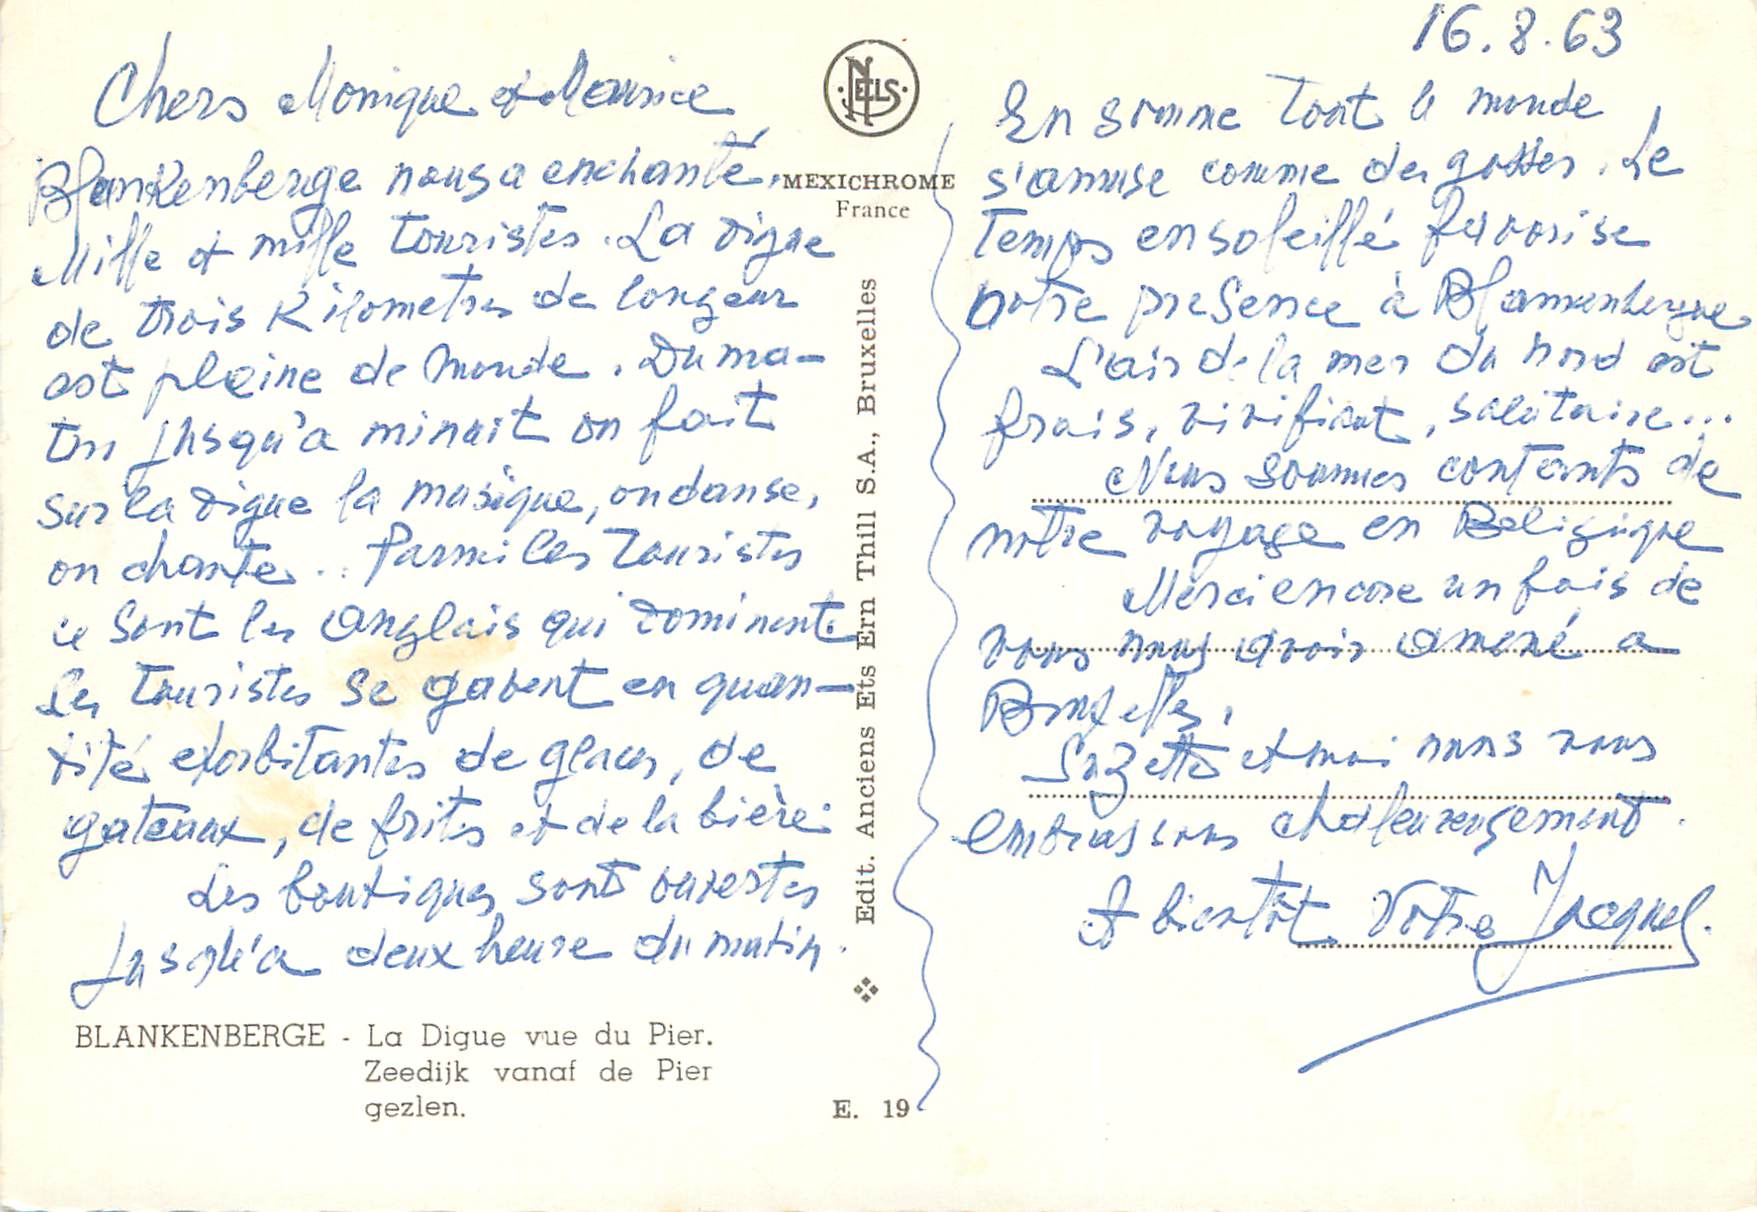 16.8.63
Chers Monique et Maurice
Blankenberge nous a enchanté.
Mille et mille touristes. La digue
de trois Kilometres de longeur
est pleine de monde. Du ma-
tin jusqu'a minuit on fait
sur la digue la musique, on danse,
on chante... Parmi les Touristes
ce sont les Anglais qui dominent.
Les touristes se gavent en quan-
tité exorbitantes de glaces, de
gateaux, de frites et de la bière.
Les boutiques sont ouvertes
Jusqu'a deux heure du matin.
En somme tout le monde
s'amuse comme des gosses. Le
temps ensoleillé favorise
notre presence à Blankenbergue
L'air de la mer du nord est
frais, vivifiant, salutaire...
Nous sommes contents de
notre voyage en Belgique
Merci encore un fois de
vous nous avoir amené a
Bruxelles.
Suzette et moi nous vous
embrassons chaleureusement.
A bientôt Votre Jacques.
NELS
MEXICHROME
France
Edit. Anciens Ets Ern Thill S.A., Bruxelles
BLANKENBERGE - La Digue vue du Pier.
Zeedijk vanaf de Pier
gezien.
E. 19